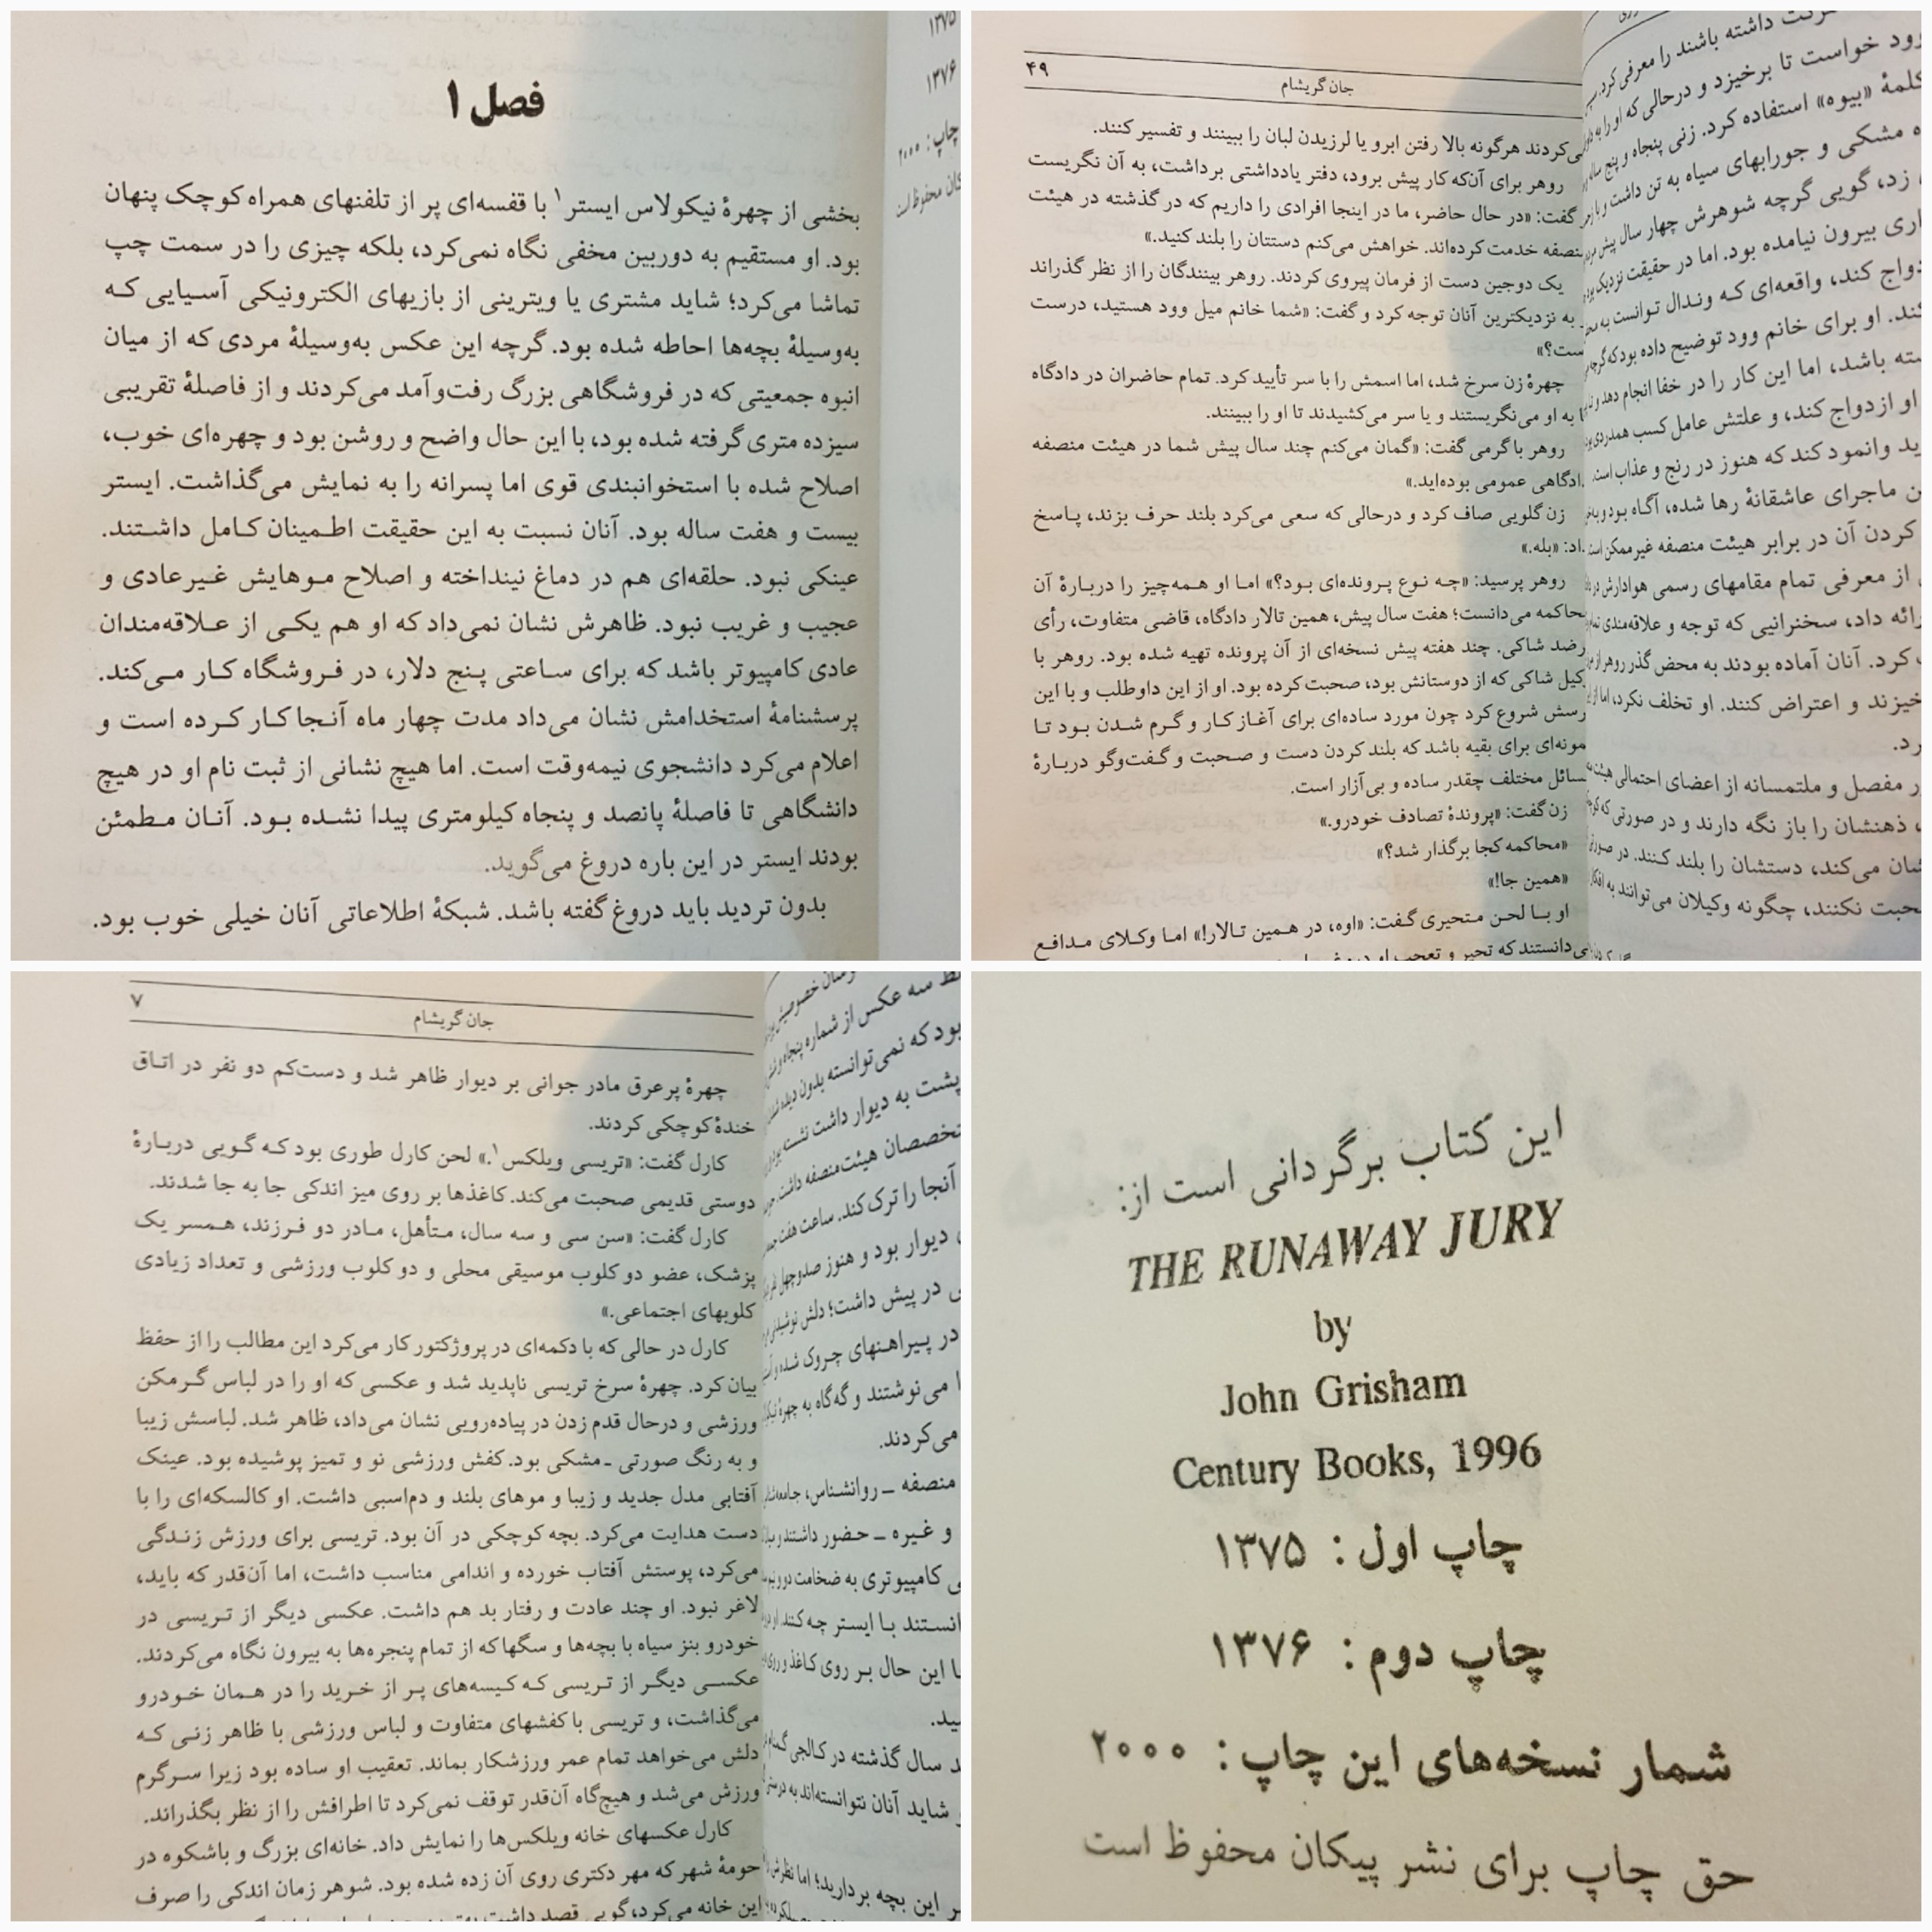 ۱۳۷۵
۱۳۷۶
چاپ: ۲۰۰۰
محفوظ است
فصل ۱
بخشی از چهرهٔ نیکولاس ایستر۱ با قفسه‌ای پر از تلفنهای همراه کوچک پنهان
بود. او مستقیم به دوربین مخفی نگاه نمی‌کرد، بلکه چیزی را در سمت چپ
تماشا می‌کرد؛ شاید مشتری یا ویترینی از بازیهای الکترونیکی آسیایی که
به‌وسیلهٔ بچه‌ها احاطه شده بود. گرچه این عکس به‌وسیلهٔ مردی که از میان
انبوه جمعیتی که در فروشگاهی بزرگ رفت‌وآمد می‌کردند و از فاصلهٔ تقریبی
سیزده متری گرفته شده بود، با این حال واضح و روشن بود و چهره‌ای خوب،
اصلاح شده با استخوانبندی قوی اما پسرانه را به نمایش می‌گذاشت. ایستر
بیست و هفت ساله بود. آنان نسبت به این حقیقت اطمینان کامل داشتند.
عینکی نبود. حلقه‌ای هم در دماغ نینداخته و اصلاح موهایش غیرعادی و
عجیب و غریب نبود. ظاهرش نشان نمی‌داد که او هم یکی از علاقه‌مندان
عادی کامپیوتر باشد که برای ساعتی پنج دلار، در فروشگاه کار می‌کند.
پرسشنامهٔ استخدامش نشان می‌داد مدت چهار ماه آنجا کار کرده است و
اعلام می‌کرد دانشجوی نیمه‌وقت است. اما هیچ نشانی از ثبت نام او در هیچ
دانشگاهی تا فاصلهٔ پانصد و پنجاه کیلومتری پیدا نشده بود. آنان مطمئن
بودند ایستر در این باره دروغ می‌گوید.
بدون تردید باید دروغ گفته باشد. شبکهٔ اطلاعاتی آنان خیلی خوب بود.
داشته باشند را معرفی کرد.
خواست تا برخیزد و درحالی که او را به
«بیوه» استفاده کرد. زنی پنجاه و پنج ساله
مشکی و جورابهای سیاه به تن داشت و
زد، گویی گرچه شوهرش چهار سال پیش
بیرون نیامده بود. اما در حقیقت نزدیک بود
کند، واقعه‌ای که وندال توانست به
او برای خانم وود توضیح داده بود که گرچه
باشد، اما این کار را در خفا انجام دهد و
او ازدواج کند، و علتش عامل کسب همدردی
وانمود کند که هنوز در رنج و عذاب است.
ماجرای عاشقانهٔ رها شده، آگاه بود و
کردن آن در برابر هیئت منصفه غیرممکن است
از معرفی تمام مقامهای رسمی هوادارش در
داد، سخنرانیی که توجه و علاقه‌مندی تمام
کرد. آنان آماده بودند به محض گذر روهر از
و اعتراض کنند. او تخلف نکرد، اما از
مفصل و ملتمسانه از اعضای احتمالی هیئت
ذهنشان را باز نگه دارند و در صورتی که
می‌کند، دستشان را بلند کنند. در صورتی
نکنند، چگونه وکیلان می‌توانند به افکار
۴۹
جان گریشام
می‌کردند هرگونه بالا رفتن ابرو یا لرزیدن لبان را ببینند و تفسیر کنند.
روهر برای آن‌که کار پیش برود، دفتر یادداشتی برداشت، به آن نگریست
گفت: «در حال حاضر، ما در اینجا افرادی را داریم که در گذشته در هیئت
منصفه خدمت کرده‌اند. خواهش می‌کنم دستتان را بلند کنید.»
یک دوجین دست از فرمان پیروی کردند. روهر بینندگان را از نظر گذراند
به نزدیکترین آنان توجه کرد و گفت: «شما خانم میل وود هستید، درست
ست؟»
چهرهٔ زن سرخ شد، اما اسمش را با سر تأیید کرد. تمام حاضران در دادگاه
به او می‌نگریستند و یا سر می‌کشیدند تا او را ببینند.
روهر با گرمی گفت: «گمان می‌کنم چند سال پیش شما در هیئت منصفه
دادگاهی عمومی بوده‌اید.»
زن گلویی صاف کرد و درحالی که سعی می‌کرد بلند حرف بزند، پاسخ
داد: «بله.»
روهر پرسید: «چه نوع پرونده‌ای بود؟» اما او همه‌چیز را دربارهٔ آن
محاکمه می‌دانست؛ هفت سال پیش، همین تالار دادگاه، قاضی متفاوت، رأی
رضد شاکی. چند هفته پیش نسخه‌ای از آن پرونده تهیه شده بود. روهر با
کیل شاکی که از دوستانش بود، صحبت کرده بود. او از این داوطلب و با این
رسش شروع کرد چون مورد ساده‌ای برای آغاز کار و گرم شدن بود تا
مونه‌ای برای بقیه باشد که بلند کردن دست و صحبت و گفت‌وگو دربارهٔ
سائل مختلف چقدر ساده و بی‌آزار است.
زن گفت: «پروندهٔ تصادف خودرو.»
«محاکمه کجا برگذار شد؟»
«همین جا!»
او با لحن متحیری گفت: «اوه، در همین تالار!» اما وکلای مدافع
می‌دانستند که تحیر و تعجب او
سه عکس از شماره پنجاه و
بود که نمی‌توانسته بدون دیده شدن
پشت به دیوار داشت نشسته بود
متخصصان هیئت‌منصفه داشت،
آنجا را ترک کند. ساعت هفت
دیوار بود و هنوز صدوچهل
در پیش داشت؛ دلش نوشیدنی
در پیراهنهای چروک شده و
می‌نوشتند و گه‌گاه به چهرهٔ
می‌کردند.
منصفه ـ روانشناس، جامعه‌شناس
و غیره ـ حضور داشتند و
کامپیوتری به ضخامت دو و نیم
با ایستر چه کنند.
این حال بر روی کاغذ و روی
سال گذشته در کالجی گمنام
شاید آنان نتوانسته‌اند به درستی
این بچه بردارید؛ اما نظرش
۷
جان گریشام
چهرهٔ پرعرق مادر جوانی بر دیوار ظاهر شد و دست‌کم دو نفر در اتاق
خندهٔ کوچکی کردند.
کارل گفت: «تریسی ویلکس۱.» لحن کارل طوری بود که گویی دربارهٔ
دوستی قدیمی صحبت می‌کند. کاغذها بر روی میز اندکی جا به جا شدند.
کارل گفت: «سن سی و سه سال، متأهل، مادر دو فرزند، همسر یک
پزشک، عضو دو کلوب موسیقی محلی و دو کلوب ورزشی و تعداد زیادی
کلوبهای اجتماعی.»
کارل در حالی که با دکمه‌ای در پروژکتور کار می‌کرد این مطالب را از حفظ
بیان کرد. چهرهٔ سرخ تریسی ناپدید شد و عکسی که او را در لباس گرمکن
ورزشی و درحال قدم زدن در پیاده‌رویی نشان می‌داد، ظاهر شد. لباسش زیبا
و به رنگ صورتی ـ مشکی بود. کفش ورزشی نو و تمیز پوشیده بود. عینک
آفتابی مدل جدید و زیبا و موهای بلند و دم‌اسبی داشت. او کالسکه‌ای را با
دست هدایت می‌کرد. بچه کوچکی در آن بود. تریسی برای ورزش زندگی
می‌کرد، پوستش آفتاب خورده و اندامی مناسب داشت، اما آن‌قدر که باید،
لاغر نبود. او چند عادت و رفتار بد هم داشت. عکسی دیگر از تریسی در
خودرو بنز سیاه با بچه‌ها و سگها که از تمام پنجره‌ها به بیرون نگاه می‌کردند.
عکسی دیگر از تریسی که کیسه‌های پر از خرید را در همان خودرو
می‌گذاشت، و تریسی با کفشهای متفاوت و لباس ورزشی با ظاهر زنی که
دلش می‌خواهد تمام عمر ورزشکار بماند. تعقیب او ساده بود زیرا سرگرم
ورزش می‌شد و هیچ‌گاه آن‌قدر توقف نمی‌کرد تا اطرافش را از نظر بگذراند.
کارل عکسهای خانه ویلکس‌ها را نمایش داد. خانه‌ای بزرگ و باشکوه در
حومهٔ شهر که مهر دکتری روی آن زده شده بود. شوهر زمان اندکی را صرف
این خانه می‌کرد، گویی قصد داشت
این کتاب برگردانی است از:
THE RUNAWAY JURY
by
John Grisham
Century Books, 1996
چاپ اول : ۱۳۷۵
چاپ دوم : ۱۳۷۶
شمار نسخه‌های این چاپ : ۲۰۰۰
حق چاپ برای نشر پیکان محفوظ است